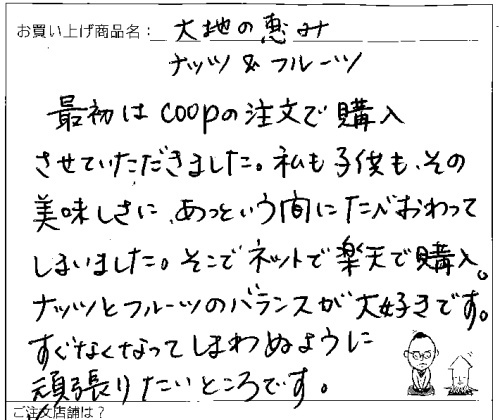 お買い上げ商品名：大地の恵み
ナッツ&フルーツ
最初はcoopの注文で購入
させていただきました。私も子供も、その
美味しさに、あっという間にたべおわって
しまいました。そこでネットで楽天で購入。
ナッツとフルーツのバランスが大好きです。
すぐなくなってしまわぬように
頑張りたいところです。
ご注文店舗は？